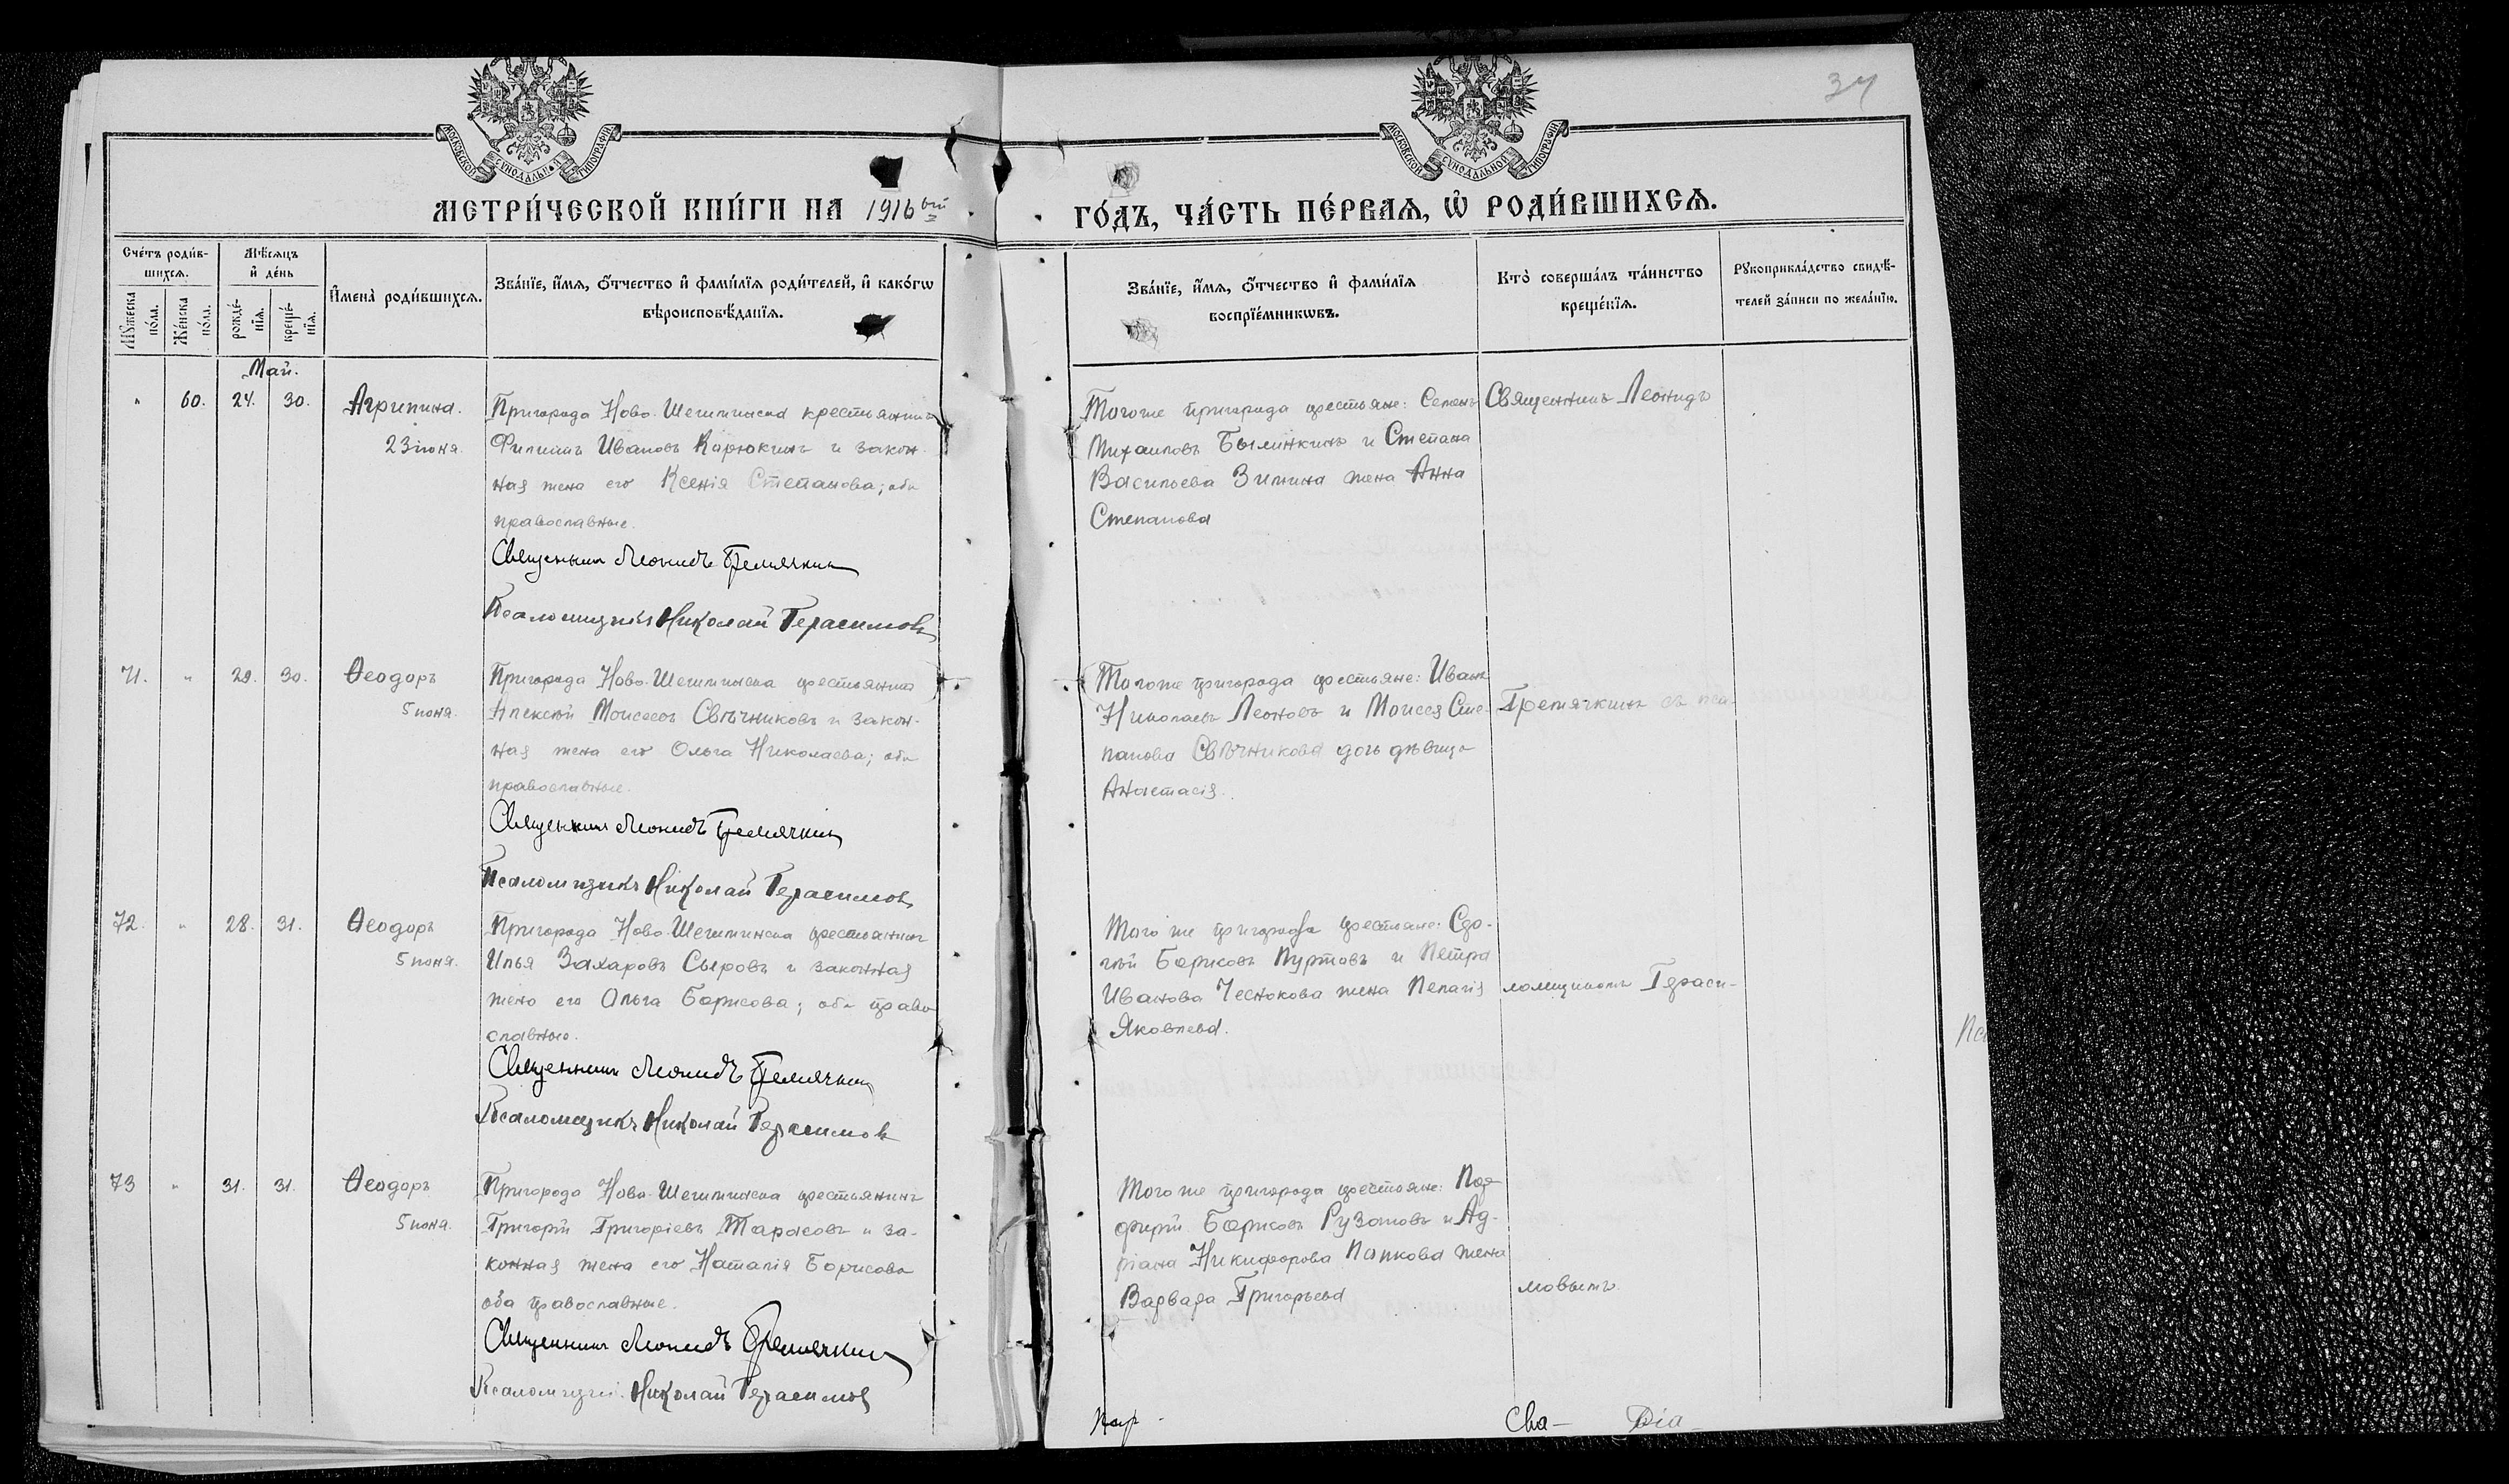 34
МОСКОВСКОЙ СѴНОДАЛЬНОЙ ТИПОГРАФІИ
МОСКОВСКОЙ СѴНОДАЛЬНОЙ ТИПОГРАФІИ
МЕТРИ́ЧЕСКОЙ КНИ́ГИ НА 1916 ый
ГО́ДЪ, ЧА́СТЬ ПЕ́РВАЯ, Ѡ РОДИ́ВШИХСЯ.
Сче́тъ роди́в-
шихся.
Мꙋжеска по́ла.
Же́нска по́ла.
Мѣ́сяцъ
и де́нь
рожде́-
нїя.
креще́-
нїя.
Имена̀ роди́вшихся.
Зва́нїе, и́мя, о́тчество и фами́лїя роди́телей, и како́гѡ
вѣроисповѣ́данїя.
Зва́нїе, и́мя, о́тчество и фами́лїя
воспрїе́мникѡвъ.
Кто̀ соверша́лъ та́инство
креще́нїя.
Рꙋкоприкла́дство свидѣ́-
телей за́писи по жела́нїю.
Май.
" 60. 24. 30. Агрипина.
23 іюня.
Пригорода Ново-Шешминска крестьянинъ
Филиппъ Ивановъ Карюкинъ и закон-
ная жена его Ксенія Степанова; оба
православные.
Священникъ Леонидъ Гремячкин
Псаломщикъ Николай Герасимовъ
Тогоже пригорода крестьяне: Семенъ
Михаиловъ Былинкинъ и Степана
Васильева Зимина жена Анна
Степанова
Священникъ Леонидъ
71. " 29. 30. Ѳеодоръ
5 июня.
Пригорода Ново-Шешминска крестьянинъ
Алексѣй Моисеевъ Свѣчниковъ и закон-
ная жена его Ольга Николаева; оба
православные.
Священникъ Леонидъ Гремячкин
Псаломщикъ Николай Герасимовъ
Тогоже пригорода крестьяне: Иванъ
Николаевъ Леоновъ и Моисея Сте-
панова Свѣчникова дочь дѣвица
Анастасія.
Гремячкинъ съ пса-
72. " 28. 31. Ѳеодоръ
5 июня.
Пригорода Ново-Шешминска крестьянинъ
Илья Захаровъ Сыровъ и законная
жена его Ольга Борисова; оба право
славные.
Священникъ Леонидъ Гремячкин
Псаломщикъ Николай Герасимовъ
Того же пригорода крестьяне:
Борисовъ Пуртовъ и Петра
Иванова Чеснокова жена Пелагія
Яковлева.
ломщикомъ Гераси-
Пса
73 " 31. 31. Ѳеодоръ
5 июня.
Пригорода Ново-Шешминска крестьянинъ
Григорій Григоріевъ Тарасовъ и за-
конная жена его Наталія Борисова
оба православные.
Священникъ Леонидъ Гремячкин
Псаломщикъ Николай Герасимовъ
Того же пригорода крестьяне: Пор-
фирій Борисовъ Рузановъ и Ад-
ріана Никифорова Папкова жена
Варвара Григорьева
мовымъ.
Свя- Діа